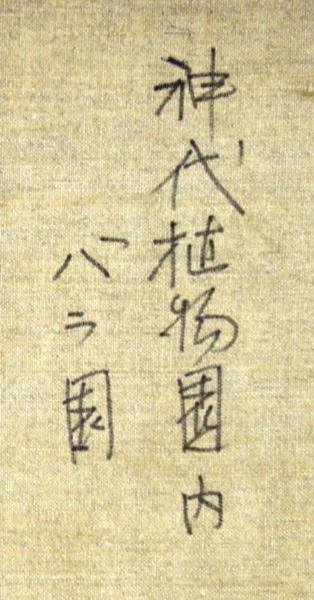 神代植物園内
バラ園